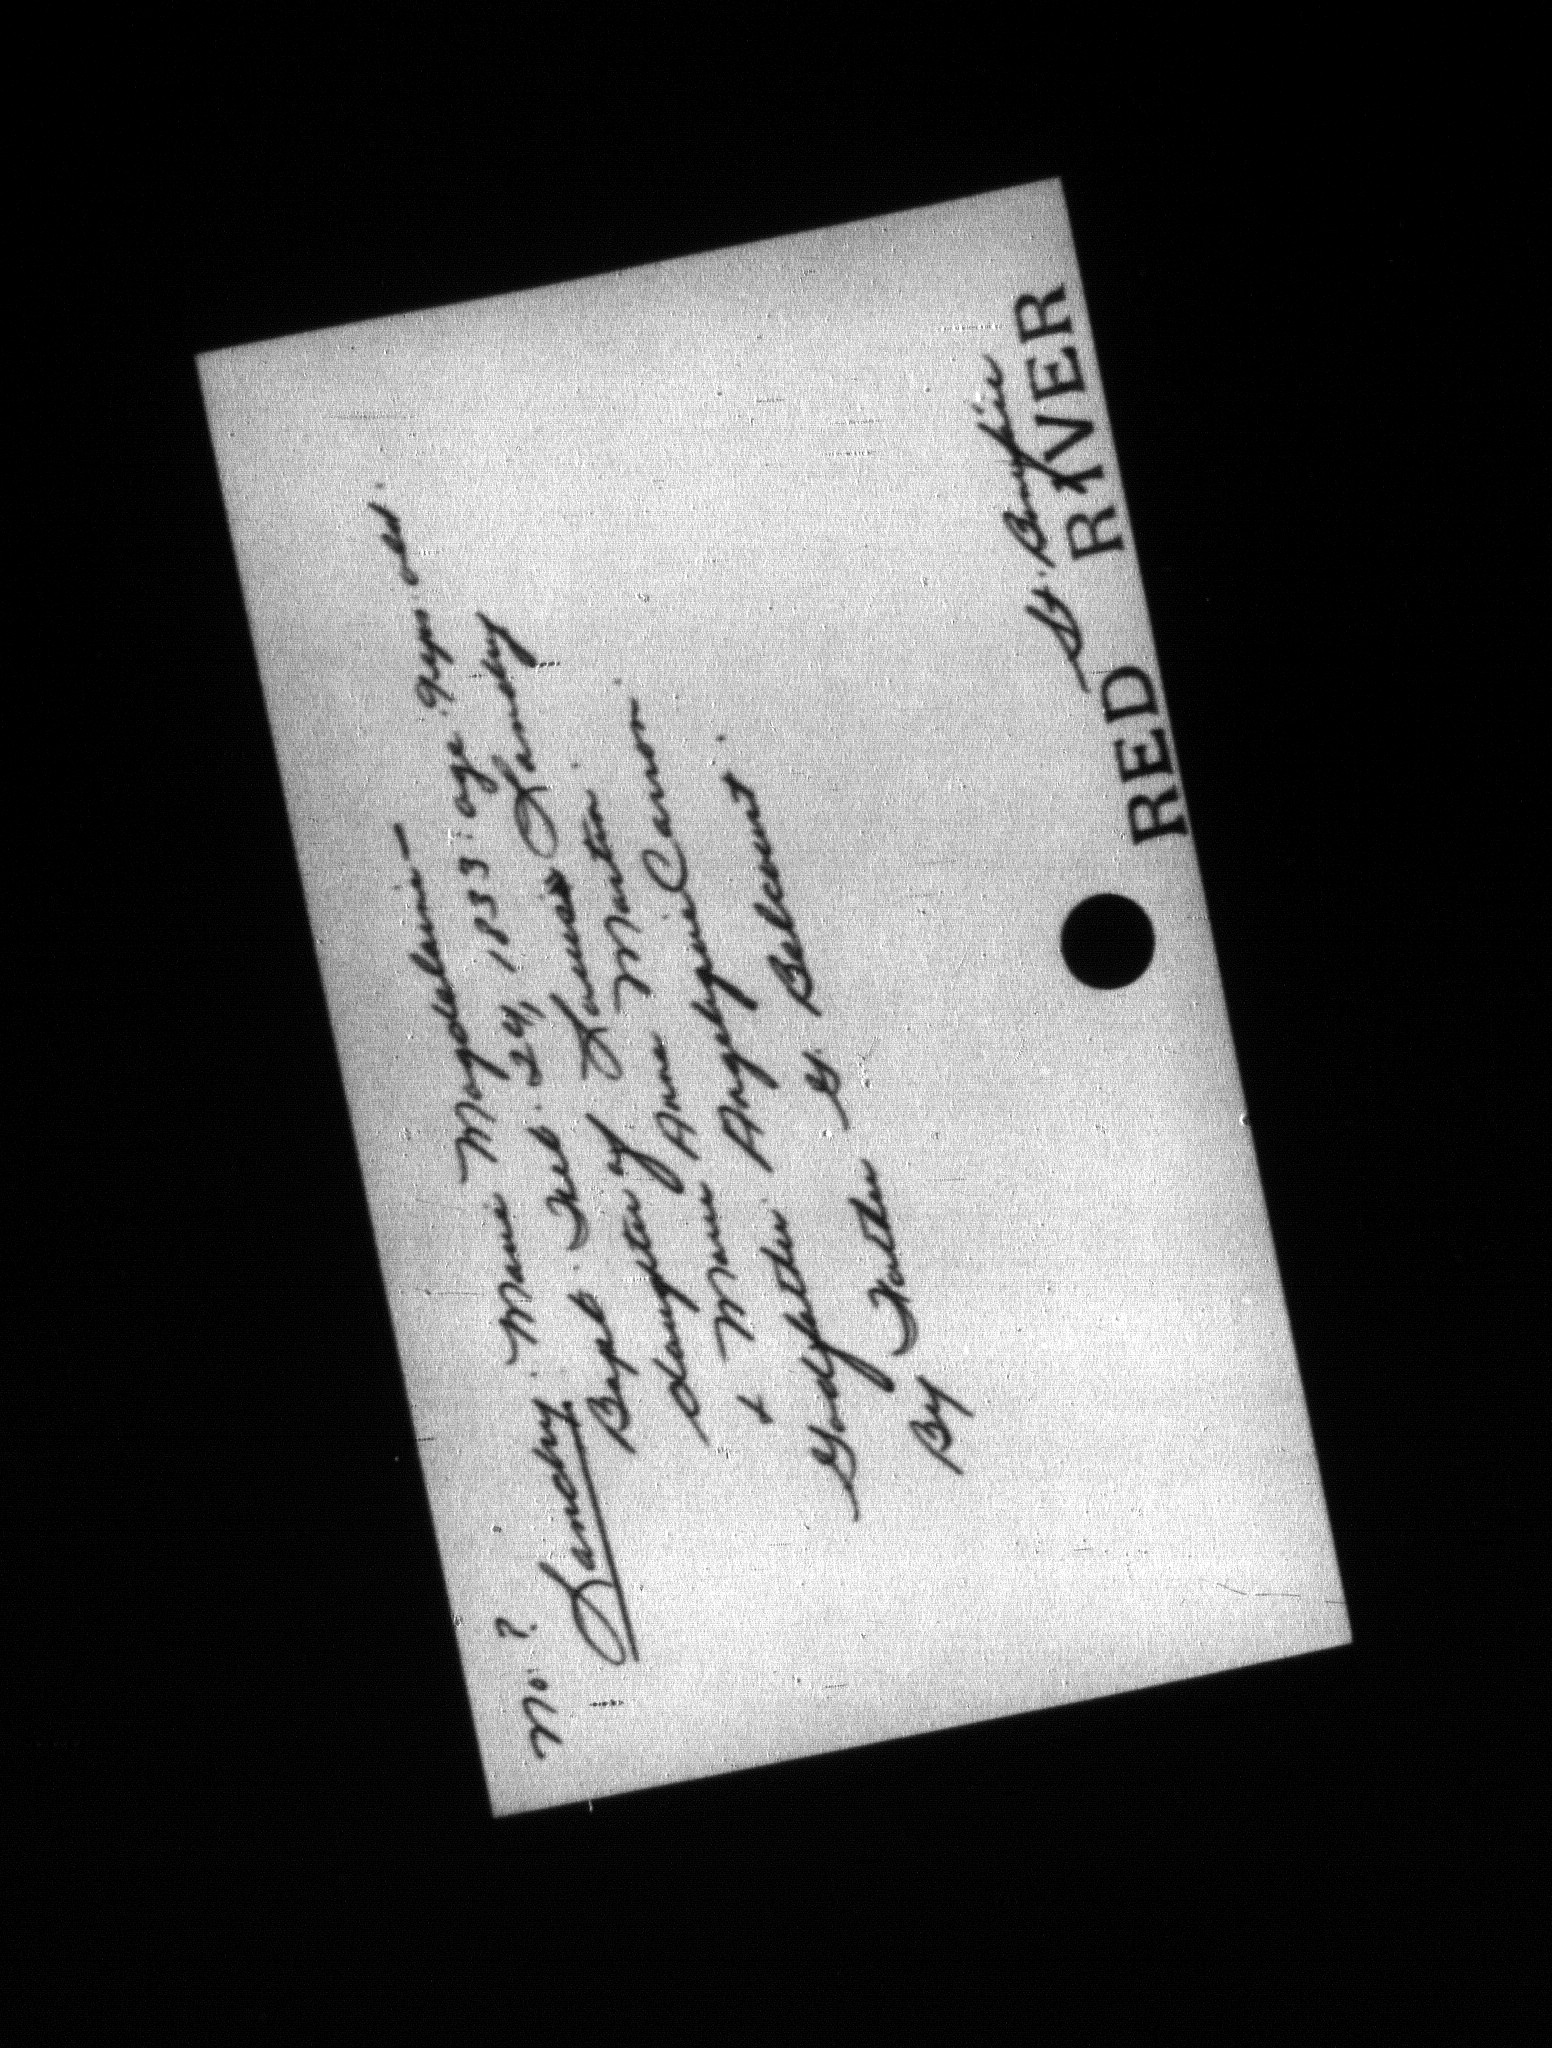 No. ?
Landry. Marie Magdelaine —
Bapt. Feb. 24, 1833. age 9 yrs. old.
daughter of Louison Landry
& Marie Anna Martin.
Godfather Angelique Caron.
By Father G. Belcourt.
St. Boniface
RED RIVER